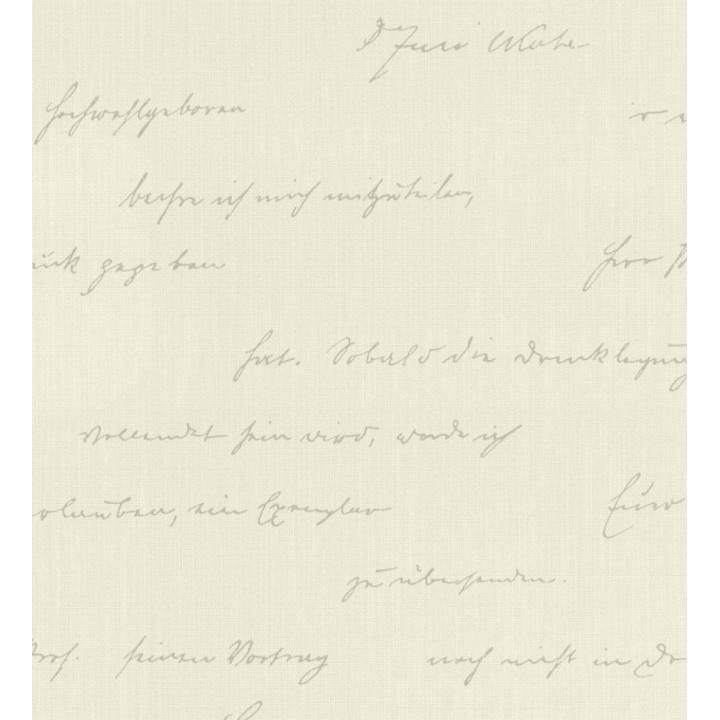 Hochwohlgeboren
beehre ich mich mitzuteilen,
ück gegeben Herr
hat. Sobald die Drucklegung
vollendet sein wird, werde ich
erlauben, ein Exemplar Euro
zu übersenden.
Prof. seinen Vortrag noch nicht in Dr